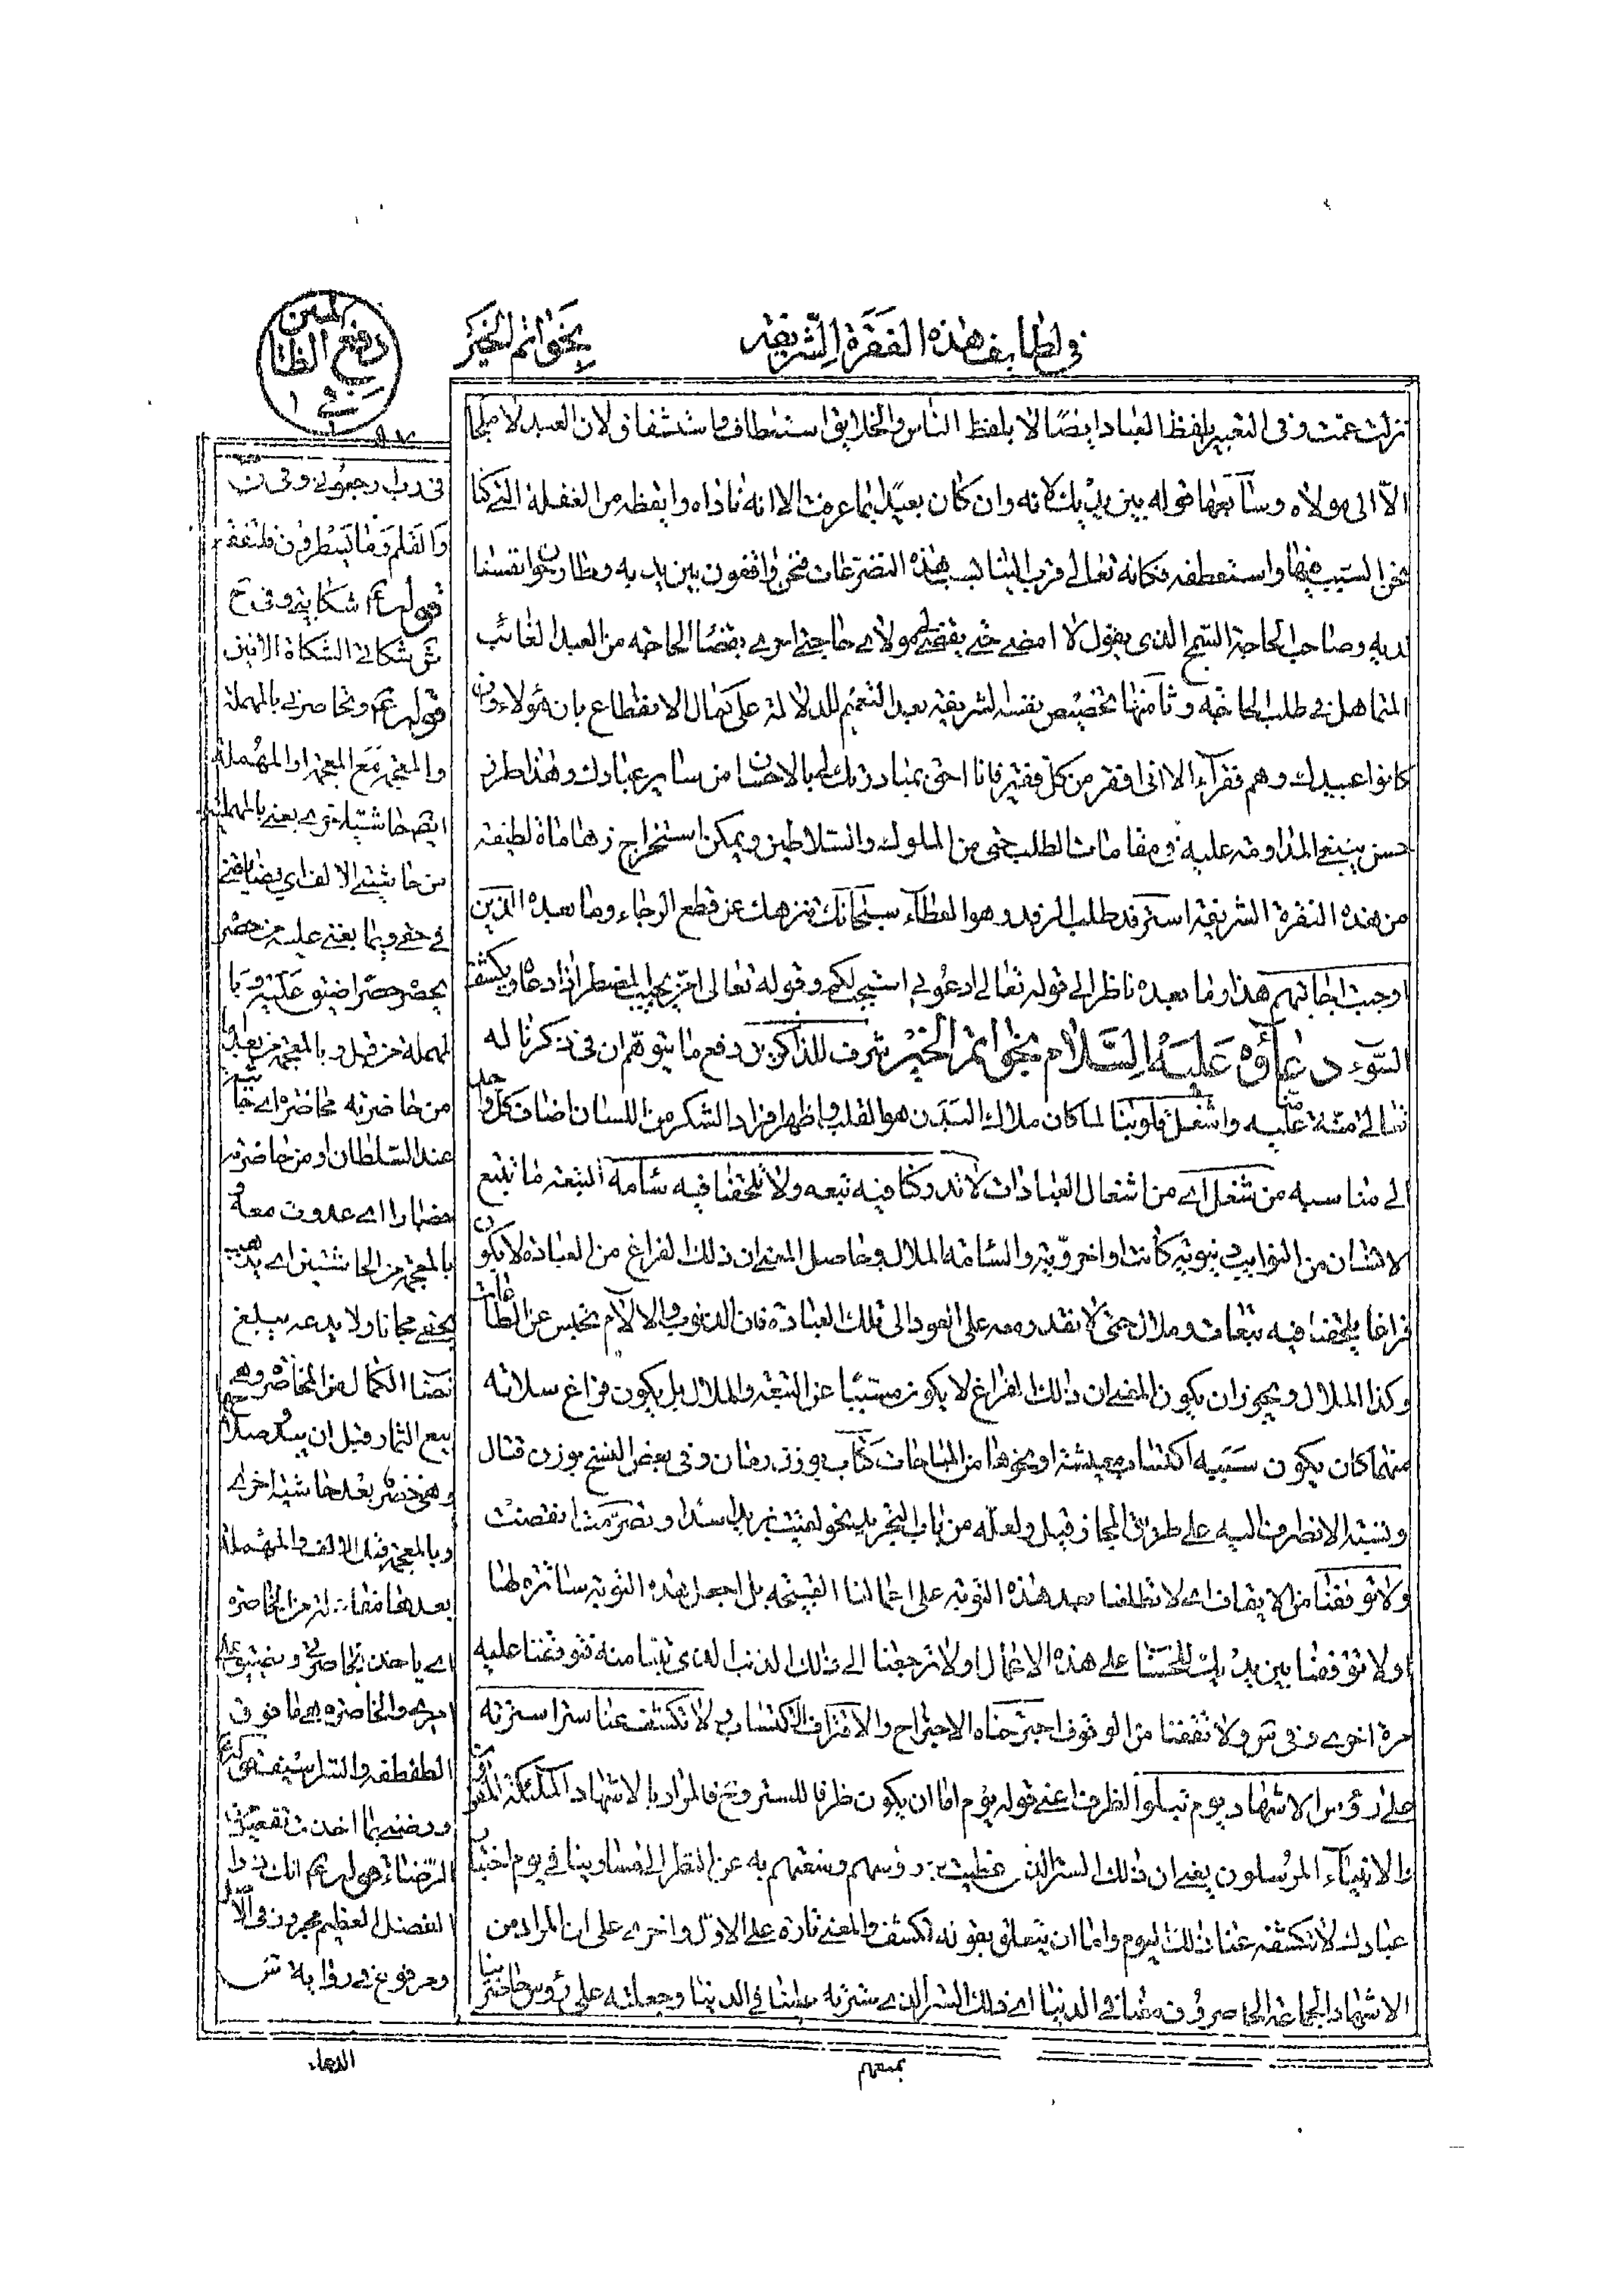 في لطايف هذه الفقرة الشريفة
بخواتم الخير
دفع الظالمين
نزلت عمت وفى التعبير بلفظ العباد ايضًا لا بلفظ الناس والخلايق استعطاف واستشفاق لان العبد لا ملجا
الّا الى مولاه وسابعها قوله بين يديك كانه وان كان بعيدًا بما عرفت الا انه ناداه وايقظه من الغفلة التي كنا
نحن السبب فيها واستعطفه فكانه تعالى قرب الينا بسبب هذه التضرعات فنحن واقفون بين يديه ومطارحون انفسنا
لديه وصاحب الحاجة السمج الذى يقول لا امضى حتى يقضى مولاى حاجتى احرى بقضاء الحاجه من العبد الغائب
المتماهل في طلب الحاجة وثامنها تخصيص نفسه الشريفة بعد التعميم للدلالة على كمال الانقطاع بان هؤلاء وان
كانوا عبيدك وهم فقرآء الا انى افقر من كل فقير فانا احق بمبادرتك لى بالاحسان من ساير عبادك وهذا طرز
حسن ينبغى المداومة عليه فى مقامات الطلب حتى من الملوك والسلاطين ويمكن استخراج زهاء مأة لطيفة
من هذه الفقرة الشريفة استرفد طلب الرفد وهو العطآء سبحانك ننزهك عن قطع الرجاء وما بعده الذين
اوجبت اجابتهم هذا وما بعده ناظر الى قوله تعالى ادعوني استجب لكم وقوله تعالى امّن يجيب المضطر اذا دعاه ويكشف
السّوء دعاؤه عليه السّلام بخواتم الخير شرف للذاكرين دفع ما يتوهم ان فى ذكرنا له
تعالى منّة منّا عليه واشغل قلوبنا لما كان ملاك البدن هو القلب واظهار افراد الشكر من اللسان اضاف كل واحد
الى مناسبه من شغل اى من اشغال العبادات لا تدركنا فيه تبعه ولا تلحقنا فيه سأمة التبعة ما يتبع
الانسان من النوايب دنيوية كانت او اخرويّة والسأمة الملال وحاصل المعنى ان ذلك الفراغ من العبادة لا يكون
فراغا يلحقنا فيه تبعات وملال حتى لا نقدر معه على العود الى تلك العبادة فان الذنوب والالام تحبس عن الطاعات
وكذا الملال ويجوز ان يكون المعنى ان ذلك الفراغ لا يكون مسببًا عن التبعة والملال بل يكون فراغ سلامة
منهما كان يكون سببه اكتساب معيشة او نحوها من المباحات كتّاب بوزن رمان وفى بعض النسخ بوزن قتال
ونسبة الانظراف اليه على طريق المجاز قيل ولعله من باب التجريد نحو لقيت بزيد اسدًا وتصرّمت انقضت
ولا توقفنا من الايقاف اى لا تطلعنا بعد هذه التوبة على اعمالنا القبيحة بل اجعل هذه التوبة ساترة لها
او لا توقفنا بين يديك للحساب على هذه الاعمال او لا ترجعنا الى ذلك الذنب الذى تبنا منه فتوقفنا عليه
مرة اخرى وفى س ولا تقفنا من الوقوف اجترحناه الاجتراح والاقتراف الاكتساب لا تكشف عنا سترا سترته
على رؤس الاشهاد يوم تبلو الظرف اعنى قوله يوم اما ان يكون ظرفا للستر وح فالمراد بالاشهاد الملئكة المقربون
والانبيآء المرسلون يعنى ان ذلك الستر الذى غطيت به رؤسهم ومنعتهم به عن النظر الى مساوينا في يوم اختبار
عبادك لا تكشفه عنا ذلك اليوم واما ان يتعلق بقوله تكشف والمعنى تارة على الاول واخرى على ان المراد من
الاشهاد الجماعة الحاضرون معنا فى الدنيا اى ذلك الستر الذى سترته علينا في الدنيا وجعلته على رؤس حاضرينا
والقلم وما يسطرون
قوله ع شكايته وفى خ
شكاتي الشكاة الانين
قوله ع وتحاصرنى بالمهملة
والمعجمة مع المعجمة او المهملة
ايضا حاشية اخرى يعنى بالمهملتين
عند السلطان او من حاضرته
حضارا اى عدوت معه
بالمعجمة من الحاشيتين اى يذهب
بحقى مجانا ولا يدعه يبلغ
نصاب الكمال من المخاضرة وهى
بيع الثمار قبل ان يبدو صلاحها
وهى خضر بعد حاشية اخرى
وبالمعجمة قبل الالف والمهملة
بعدها مفاعلة من الخاصرة
اى ياخذ بخاصرتى
والخاصرة هى ما فوق
الرضاء قوله ع انك ذو
الفضل العظيم مجرور فى الاصل
ومرفوع في رواية س
الدعاء
بمنعهم